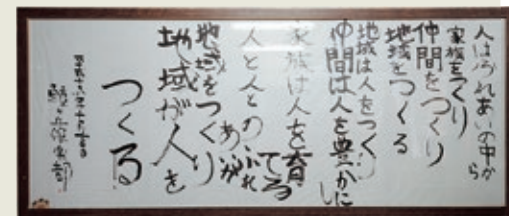 人はふれあいの中から
家族をつくり
仲間をつくり
地域をつくる
地域は人をつくり
仲間は人を豊かにし
家族は人を育てる
人と人とのふれあいが
地域をつくり
地域が人を
つくる